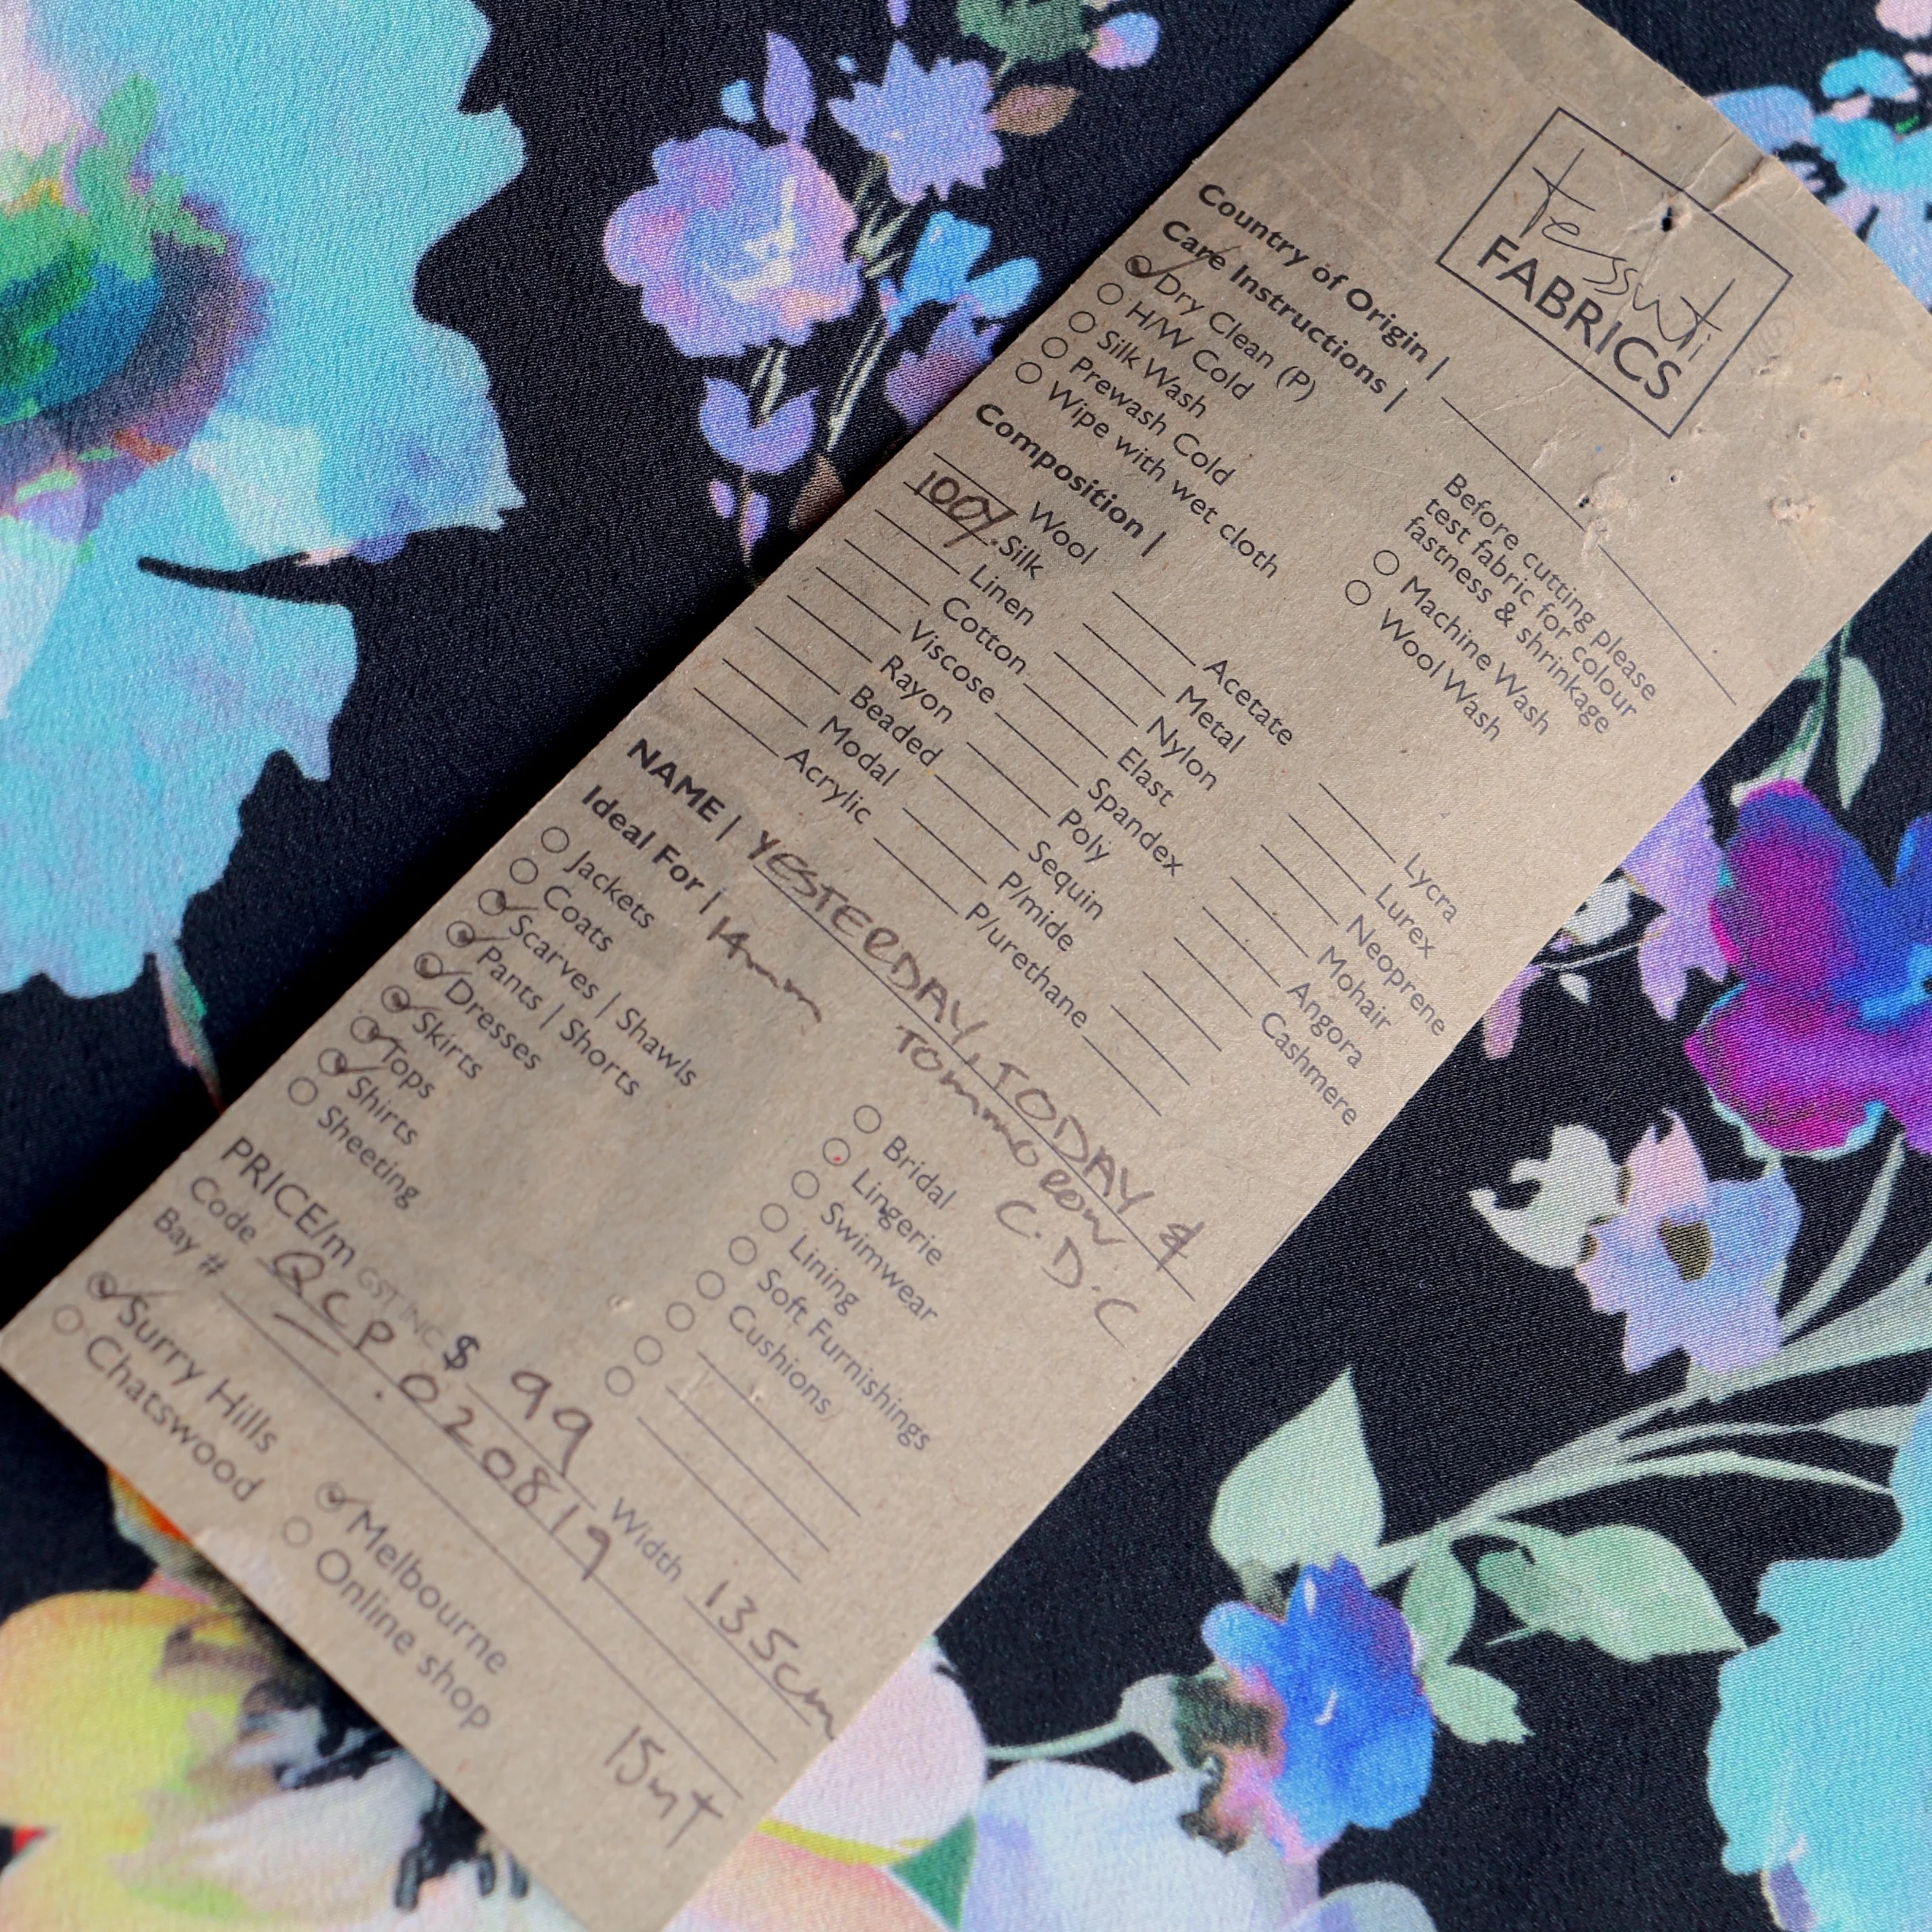 Tessuti
FABRICS
Country of Origin |
Care Instructions |
Dry Clean (P)
H/W Cold
Silk Wash
Prewash Cold
Wipe with wet cloth
Before cutting please
test fabric for colour
fastness & shrinkage
Machine Wash
Wool Wash
Composition |
Wool
100% Silk
Linen
Cotton
Viscose
Rayon
Beaded
Modal
Acrylic
Acetate
Metal
Nylon
Elast
Spandex
Poly
Sequin
P/mide
P/urethane
Lycra
Lurex
Neoprene
Mohair
Angora
Cashmere
NAME | YESTERDAY, TODAY &
TOMMOROW
C.D.C
Ideal For | 14mm
Jackets
Coats
Scarves | Shawls
Pants | Shorts
Dresses
Skirts
Tops
Shirts
Sheeting
Bridal
Lingerie
Swimwear
Lining
Soft Furnishings
Cushions
PRICE/m GST INC $ 99 Width 135cm
Code QCP.020819
Bay #
15mt
Surry Hills
Chatswood
Melbourne
Online shop